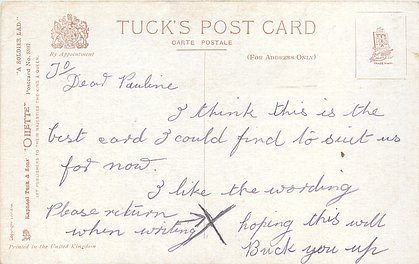 TUCK'S POST CARD
CARTE POSTALE
By Appointment
(FOR ADDRESS ONLY)
TO
Dear Pauline
I think this is the
best card I could find to suit us
for now.
I like the wording
Please return
when writing X hoping this will
Buck you up
"A SOLDIER LAD."
Raphael Tuck & Sons' "OILETTE" Postcard No.
ART PUBLISHERS TO THEIR MAJESTIES THE KING & QUEEN.
Printed in the United Kingdom